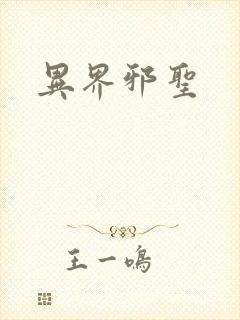 異界邪聖
王一鳴